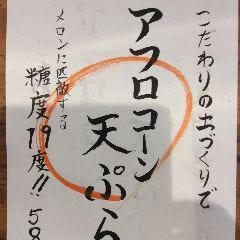 こだわりの土づくりで
アフロコーン
天ぷら
メロンに匹敵する
糖度19度!! 58